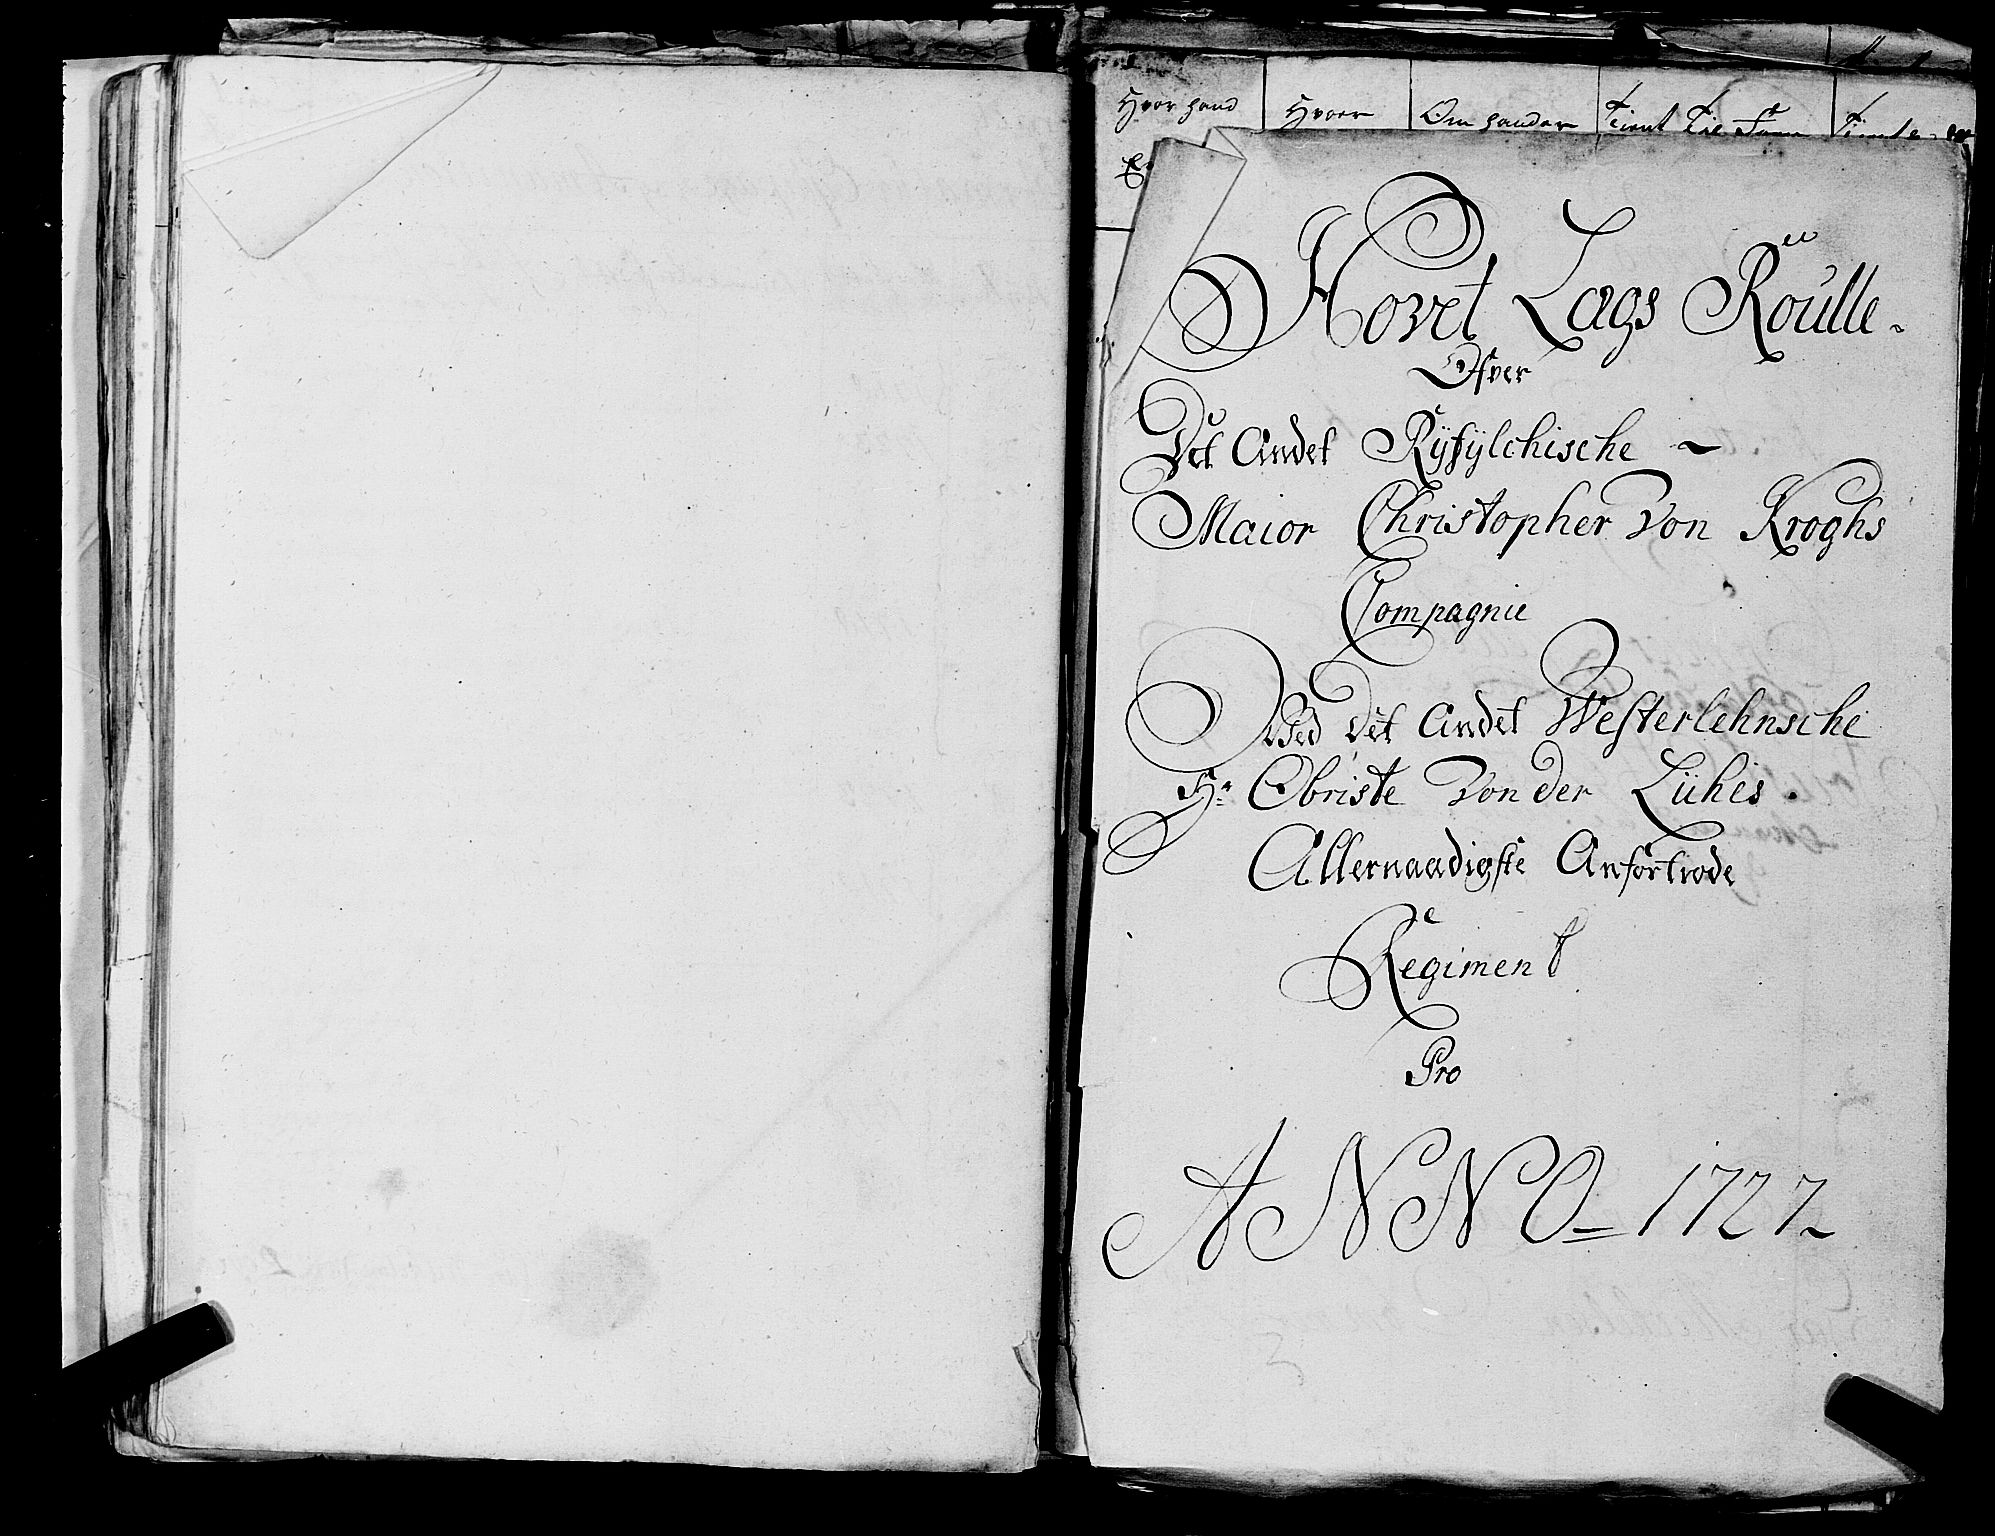 Hvor hand Hvoer Om handær Tient Til Forn Tient e
Hovet Lags Roülle
Ofver
Det Andet Ryfylchische
Maior Christopher Von Kroghs
Compagnie
Ved Det Andet Westerlehnsche
Hr Obriste Von der Lühes
Allernaadigste Anfortrode
Regiment
Pro
ANNO 1727